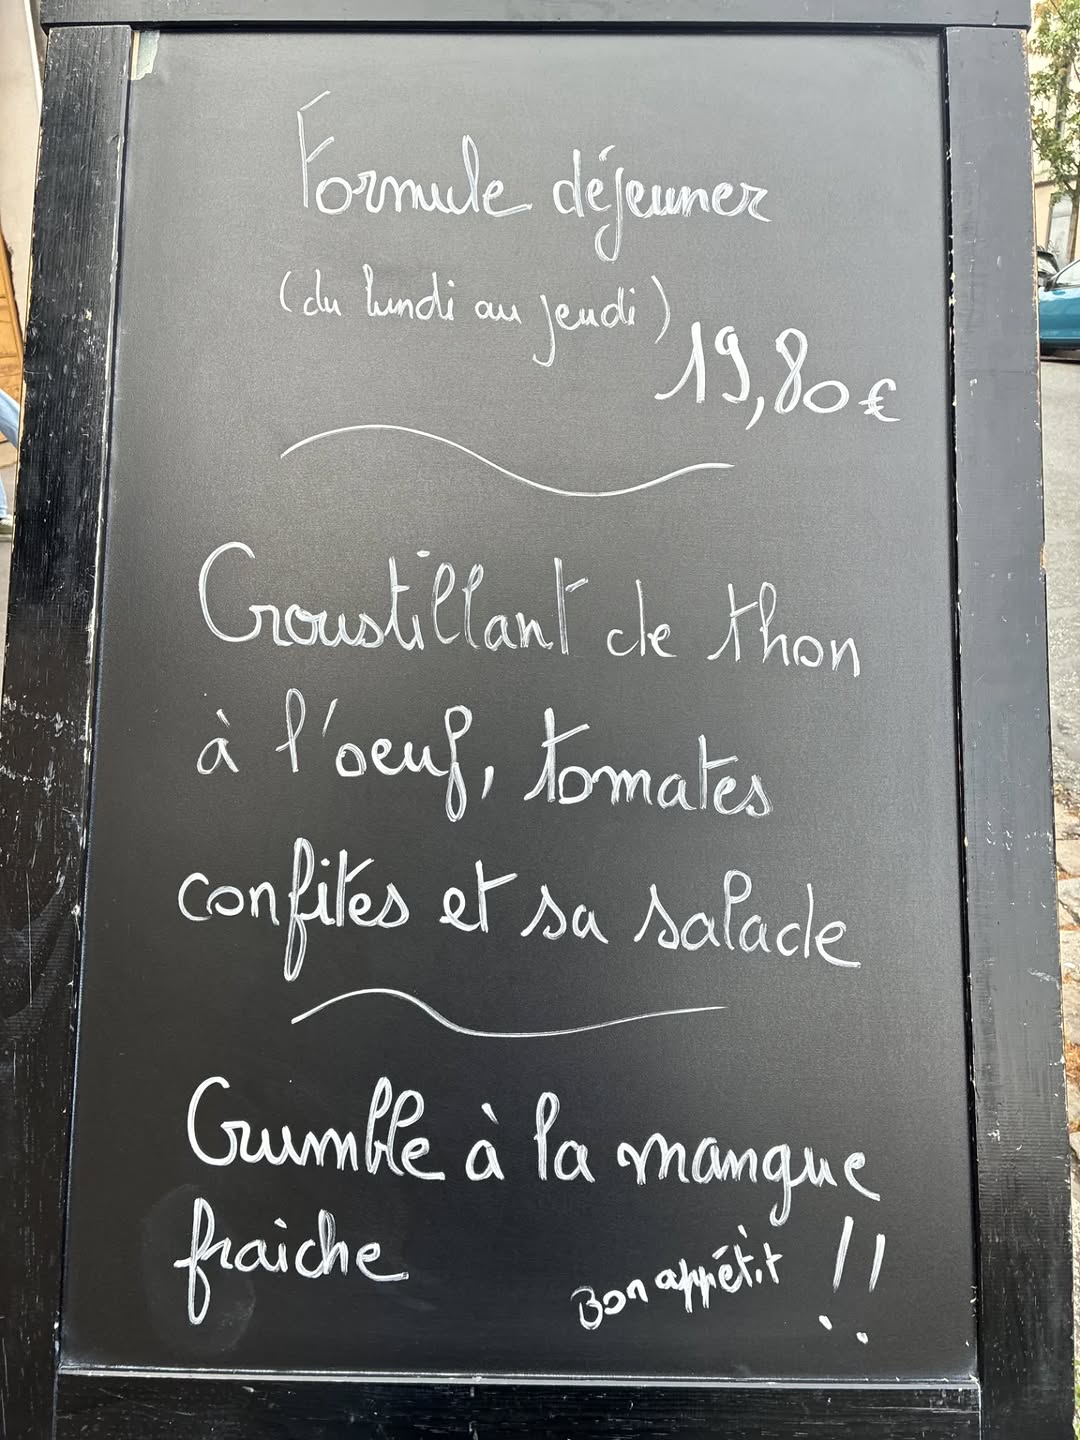 Formule déjeuner
(du lundi au jeudi)
19,80€
Croustillant de thon
à l'oeuf, tomates
confites et sa salade
Crumble à la mangue
fraiche
Bon appétit !!